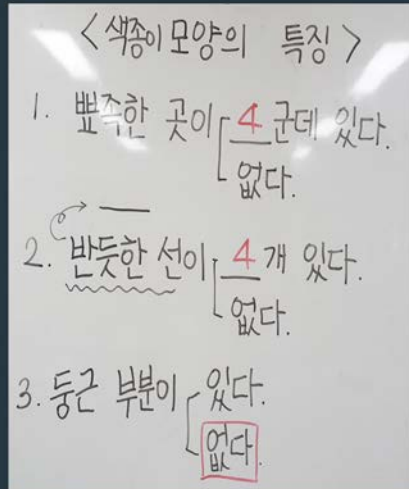 <색종이 모양의 특징>
1. 뾰족한 곳이 4 군데 있다.
없다.
2. 반듯한 선이 4 개 있다.
없다.
3. 둥근 부분이 있다.
없다.